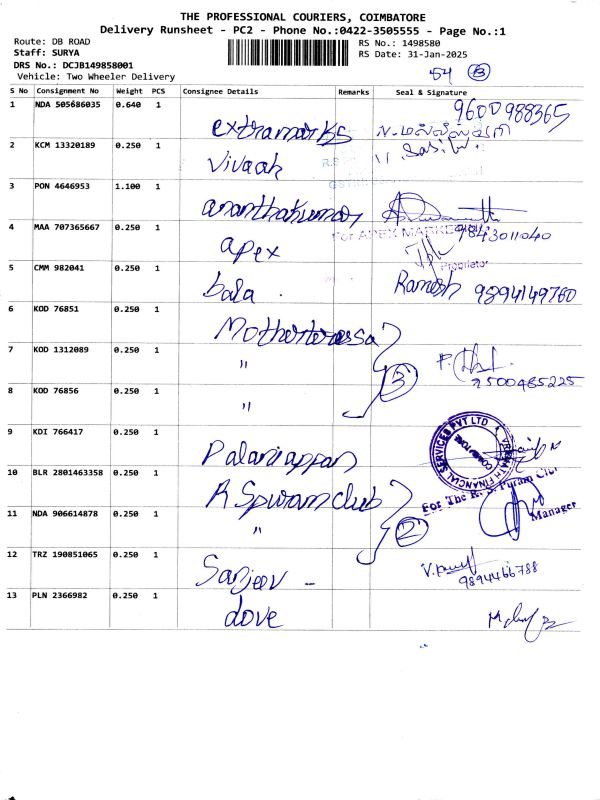 THE PROFESSIONAL COURIERS, COIMBATORE
Delivery Runsheet - PC2 - Phone No.:0422-3505555 - Page No.:1
Route: DB ROAD
RS No.: 1498580
Staff: SURYA
RS Date: 31-Jan-2025
DRS No.: DCJB149858001
Vehicle: Two Wheeler Delivery
54 (13)
S No Consignment No Weight PCS Consignee Details Remarks Seal & Signature
1 NDA 505686035 0.640 1 extramarks 9600988365
2 KCM 13320189 0.250 1 Vivaah
3 PON 4646953 1.100 1 ananthakumar
4 MAA 707365667 0.250 1 apex For APEX MARKETING 9843011040
Proprietor
5 CMM 982041 0.250 1 bala Ramesh 9894149760
6 KOD 76851 0.250 1
7 KOD 1312089 0.250 1 " 3 9500485225
8 KOD 76856 0.250 1 "
9 KDI 766417 0.250 1 Palaniappan
10 BLR 2801463358 0.250 1 R Spuram club For The R. S. Puram Club
11 NDA 906614878 0.250 1 " 2 Manager
12 TRZ 190851065 0.250 1 Sanjeev - 9894466788
13 PLN 2366982 0.250 1 dove